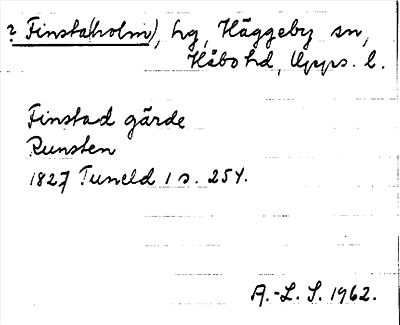 ? Finsta(holm), hg, Häggeby sn,
Håbo hd, Upps. l.
Finstad gärde
Runsten
1827 Tuneld 1 s. 254.
A.-L. S. 1962.